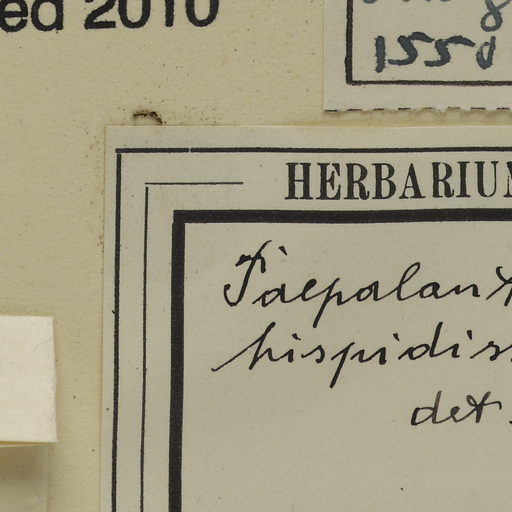 ed 2010
155
HERBARIUM
Paepalant
hispidis
det.